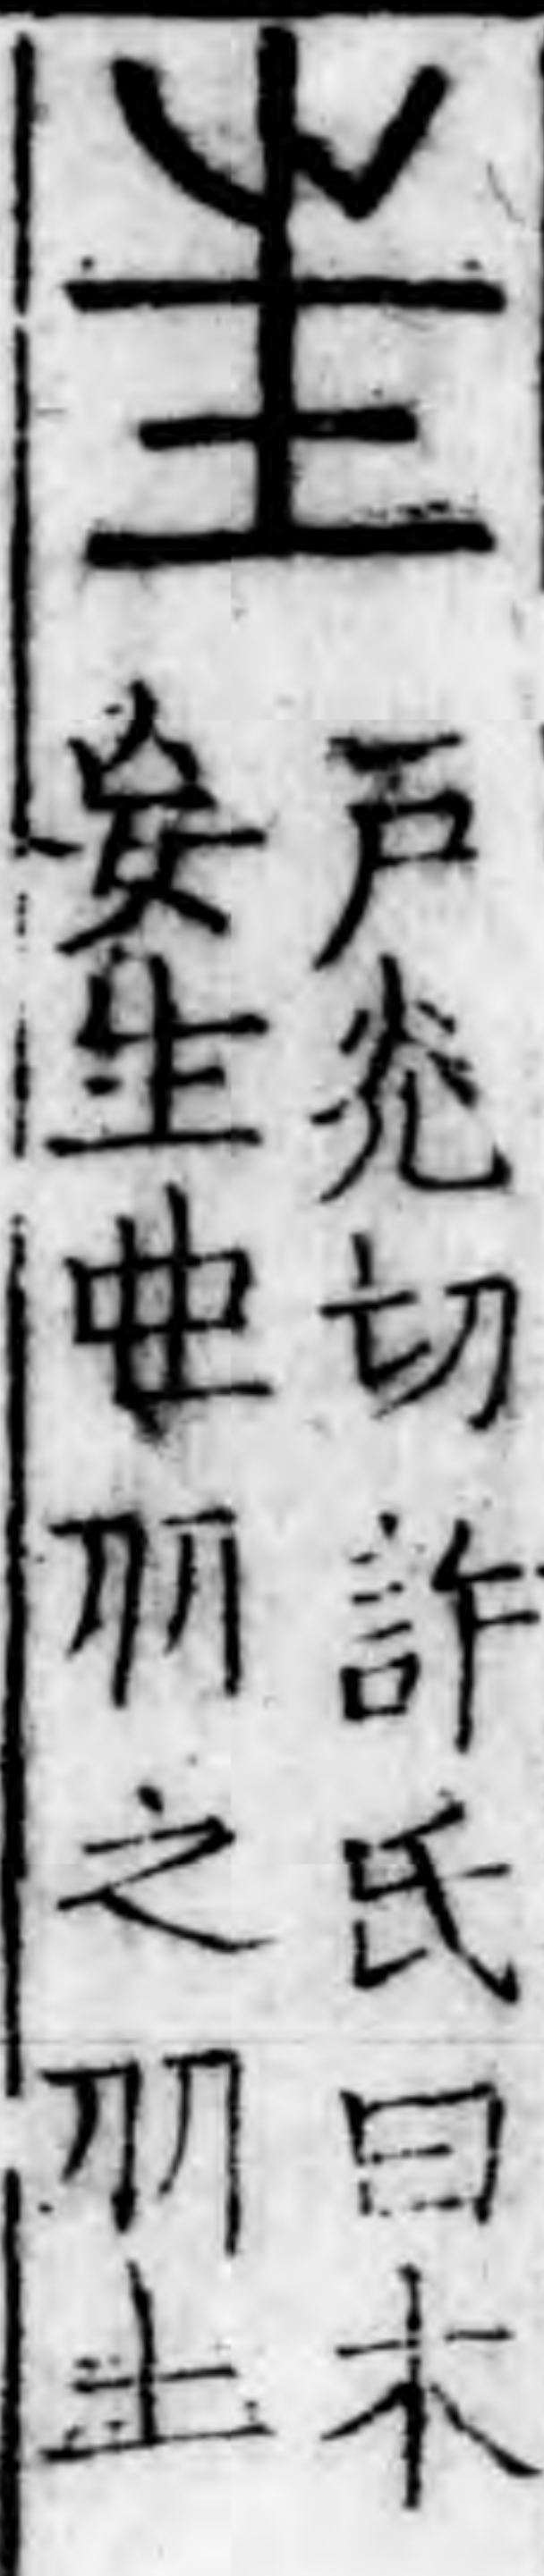 㞷
戸光切許氏曰木
妄生也从之从土